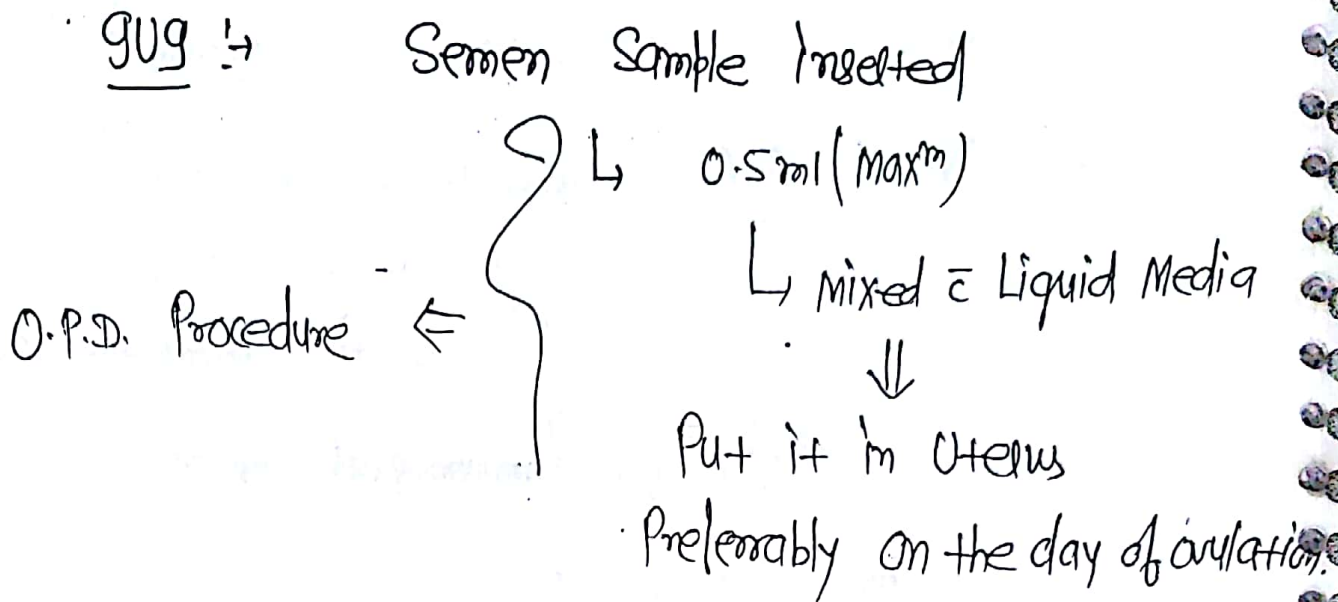 IUI :→ Semen Sample Inserted
↳ 0.5ml (Maxᵐ)
↳ Mixed c̄ Liquid Media
O.P.D. Procedure ⇐
⇓
Put it in Uterus
Preferrably on the day of ovulation.